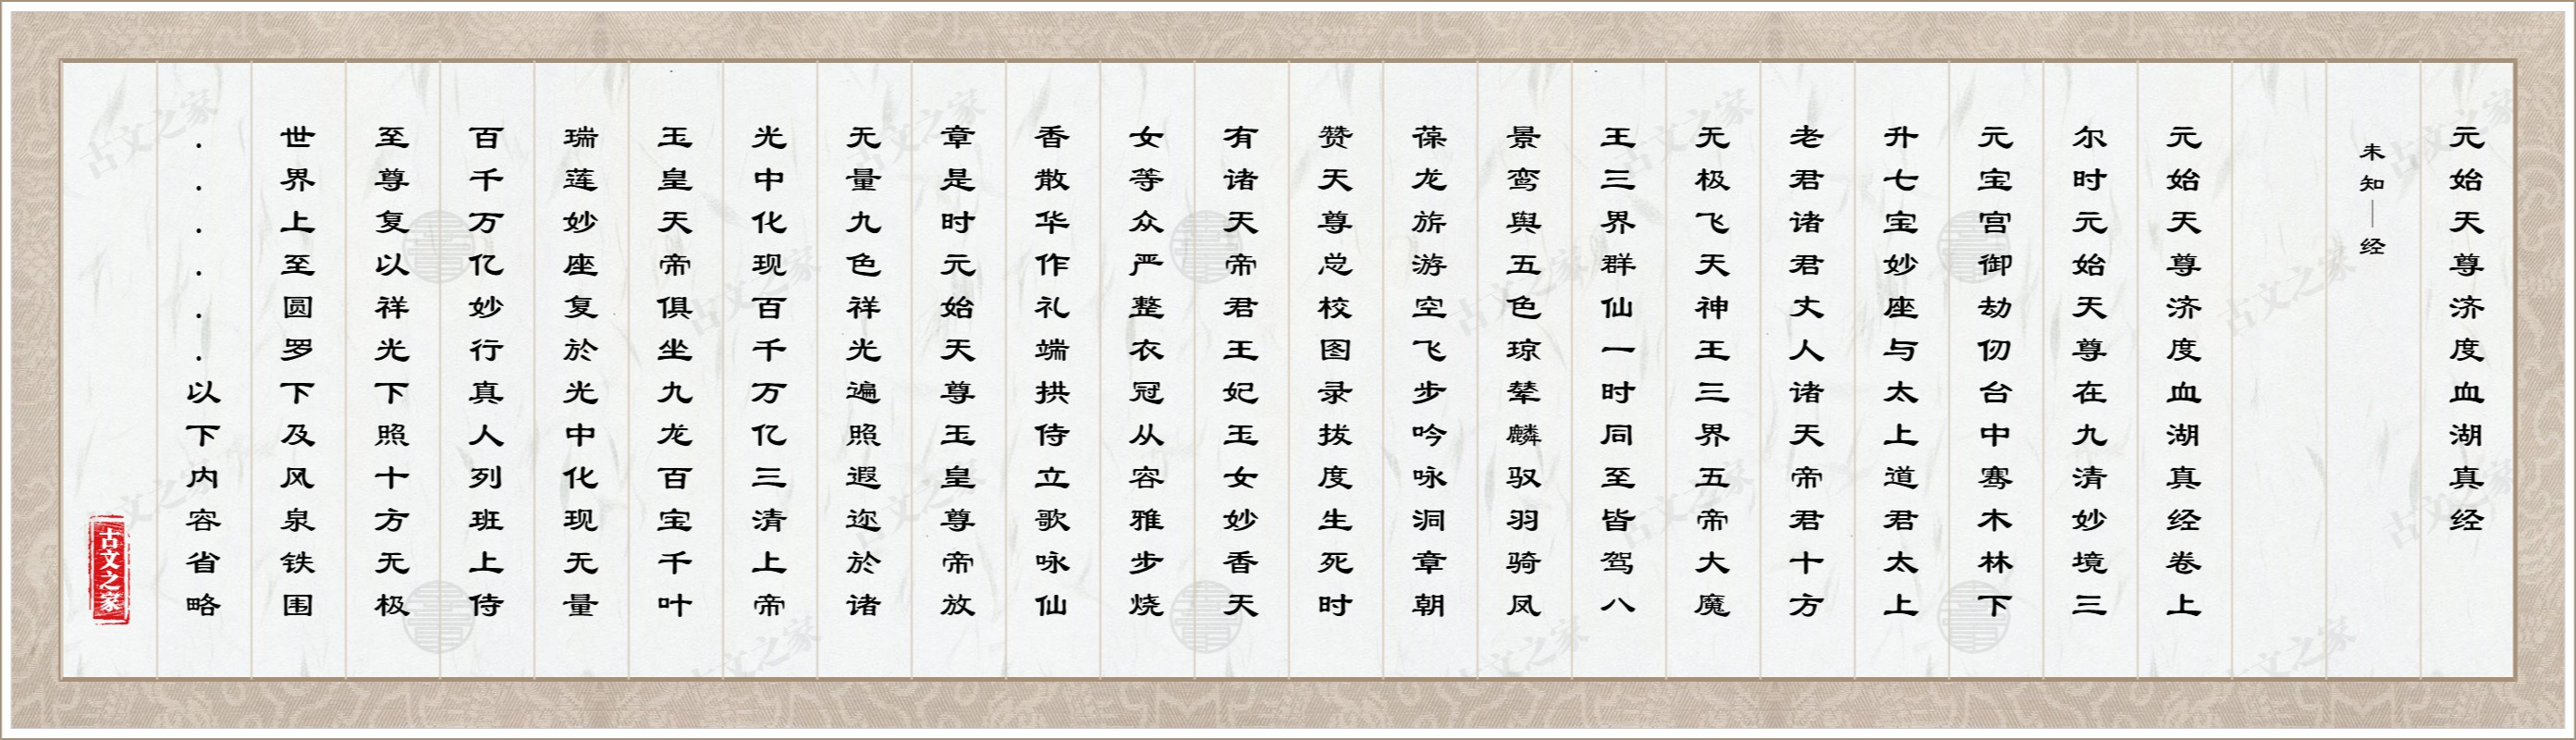 元始天尊济度血湖真经
未知—经
元始天尊济度血湖真经卷上
尔时元始天尊在九清妙境三
元宝宫御劫仞台中骞木林下
升七宝妙座与太上道君太上
老君诸君丈人诸天帝君十方
无极飞天神王三界五帝大魔
王三界群仙一时同至皆驾八
景鸾舆五色琼辇麟驭羽骑凤
葆龙旂游空飞步吟咏洞章朝
赞天尊总校图录拔度生死时
有诸天帝君王妃玉女妙香天
女等众严整衣冠从容雅步烧
香散华作礼端拱侍立歌咏仙
章是时元始天尊玉皇尊帝放
无量九色祥光遍照遐迩於诸
光中化现百千万亿三清上帝
玉皇天帝俱坐九龙百宝千叶
瑞莲妙座复於光中化现无量
百千万亿妙行真人列班上侍
至尊复以祥光下照十方无极
世界上至圆罗下及风泉铁围
. . . . . .以下内容省略
古文之家